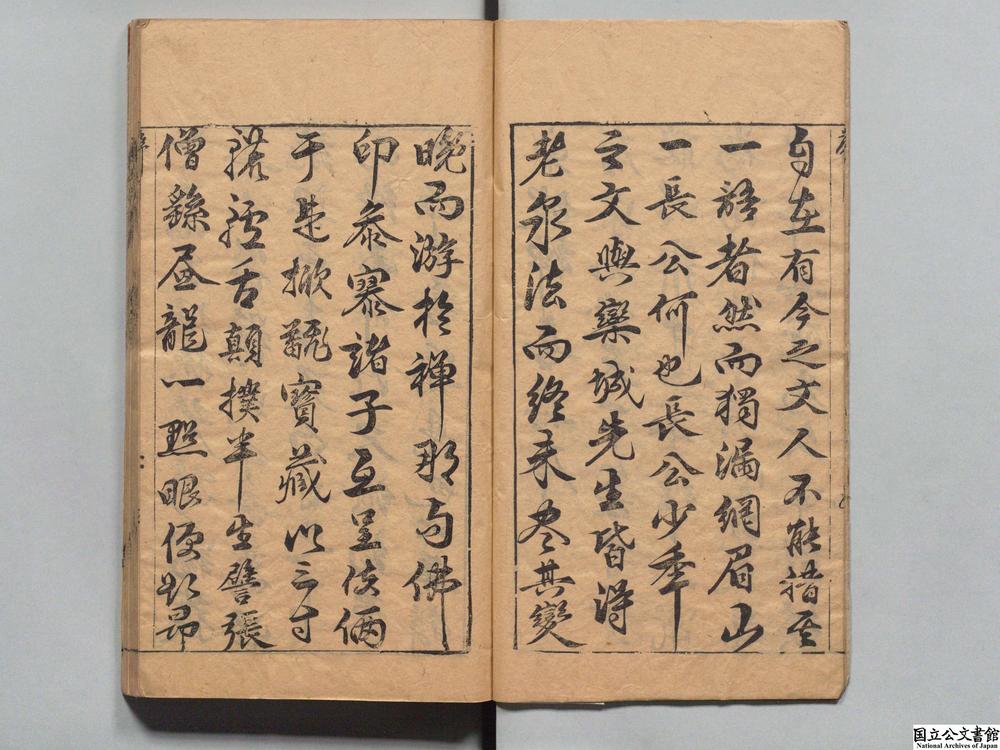 自在有今之文人不能措其
一語者然而獨漏網眉山
一長公何也長公少年
之文與欒城先生皆得
老泉法而終未盡其變
晚而游於禪那與佛
印參寥諸子互呈伎倆
于是掀翻寶藏以三寸
舌顛撲半生譬張
僧繇昼龍一點眼便欲昂
国立公文書館
National Archives of Japan